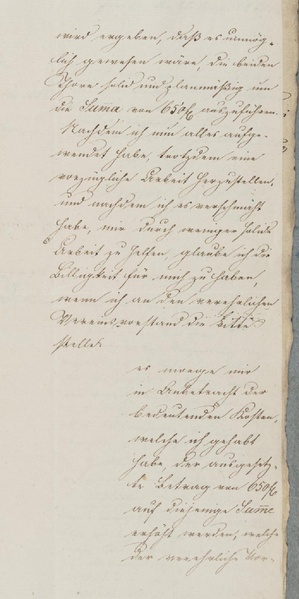 wird ergeben, daß es unmög-
lich gewesen wäre, die beiden
Thore solid und planmäßig um
die Suma von 650 f auszuführen.
Nachdem ich nun alles aufge-
wendet habe, trotzdem eine
vorzügliche Arbeit herzustellen,
und nachdem ich es verschmäht
habe, mir durch weniger solide
Arbeit zu helfen, glaube ich die
Billigkeit für mich zu haben,
wenn ich an den verehrlichen
Vereinsvorstand die Bitte
stelle
es moege mir
in Anbetracht der
bedeutenden Kosten,
welche ich gehabt
habe, der ausgesetz-
te Betrag von 650 f
auf diejenige Sume
erhöht werden, welche
der verehrliche Vor-